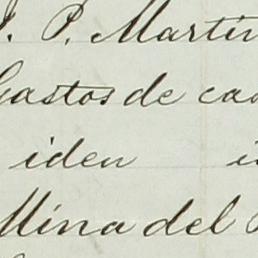 J. P. Martin
Gastos de cas
iden i
Mina del